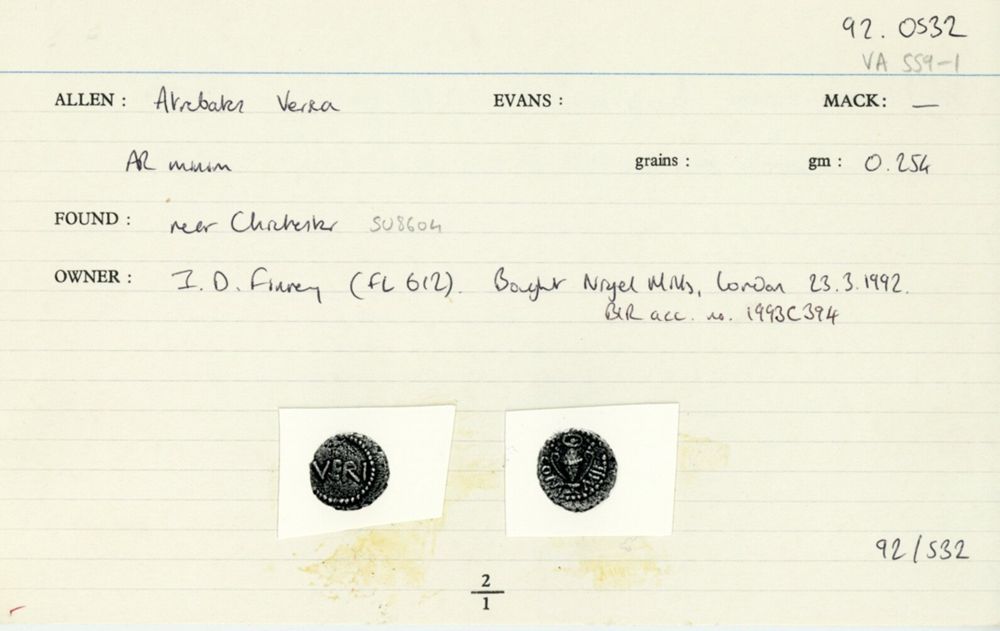 92. 0532
VA 559-1
ALLEN : Atrebates Verica EVANS : MACK: —
AR minim grains : gm : 0.254
FOUND : near Chichester SU8604
OWNER : I. D. Finney (FL 612). Bought Nigel Mills, London 23.3.1992.
BR acc. no. 1993C394
VERI
COM MI F
92/532
2
1